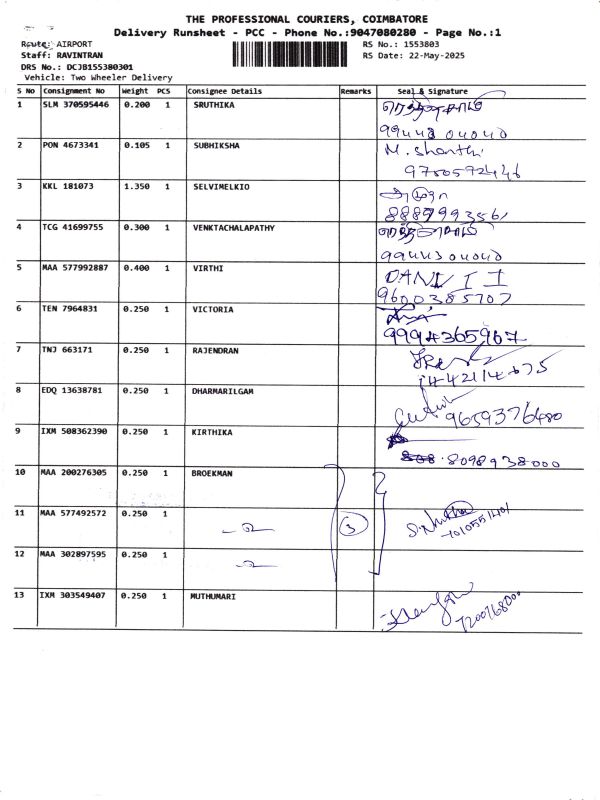 THE PROFESSIONAL COURIERS, COIMBATORE
Delivery Runsheet - PCC - Phone No.:9047080280 - Page No.:1
Route: AIRPORT
RS No.: 1553803
Staff: RAVINTRAN
RS Date: 22-May-2025
DRS No.: DCJB155380301
Vehicle: Two Wheeler Delivery
S No Consignment No Weight PCS Consignee Details Remarks Seal & Signature
1 SLM 370595446 0.200 1 SRUTHIKA
99443 04040
2 PON 4673341 0.105 1 SUBHIKSHA M. Shanthi
9750572446
3 KKL 181073 1.350 1 SELVIMELKIO
8887993561
4 TCG 41699755 0.300 1 VENKTACHALAPATHY
99443 04040
5 MAA 577992887 0.400 1 VIRTHI
9600385707
6 TEN 7964831 0.250 1 VICTORIA
9994365967
7 TNJ 663171 0.250 1 RAJENDRAN
8 EDQ 13638781 0.250 1 DHARMARILGAM
9659376480
9 IXM 508362390 0.250 1 KIRTHIKA
8098938000
10 MAA 200276305 0.250 1 BROEKMAN
11 MAA 577492572 0.250 1 3
12 MAA 302897595 0.250 1
13 IXM 303549407 0.250 1 MUTHUMARI